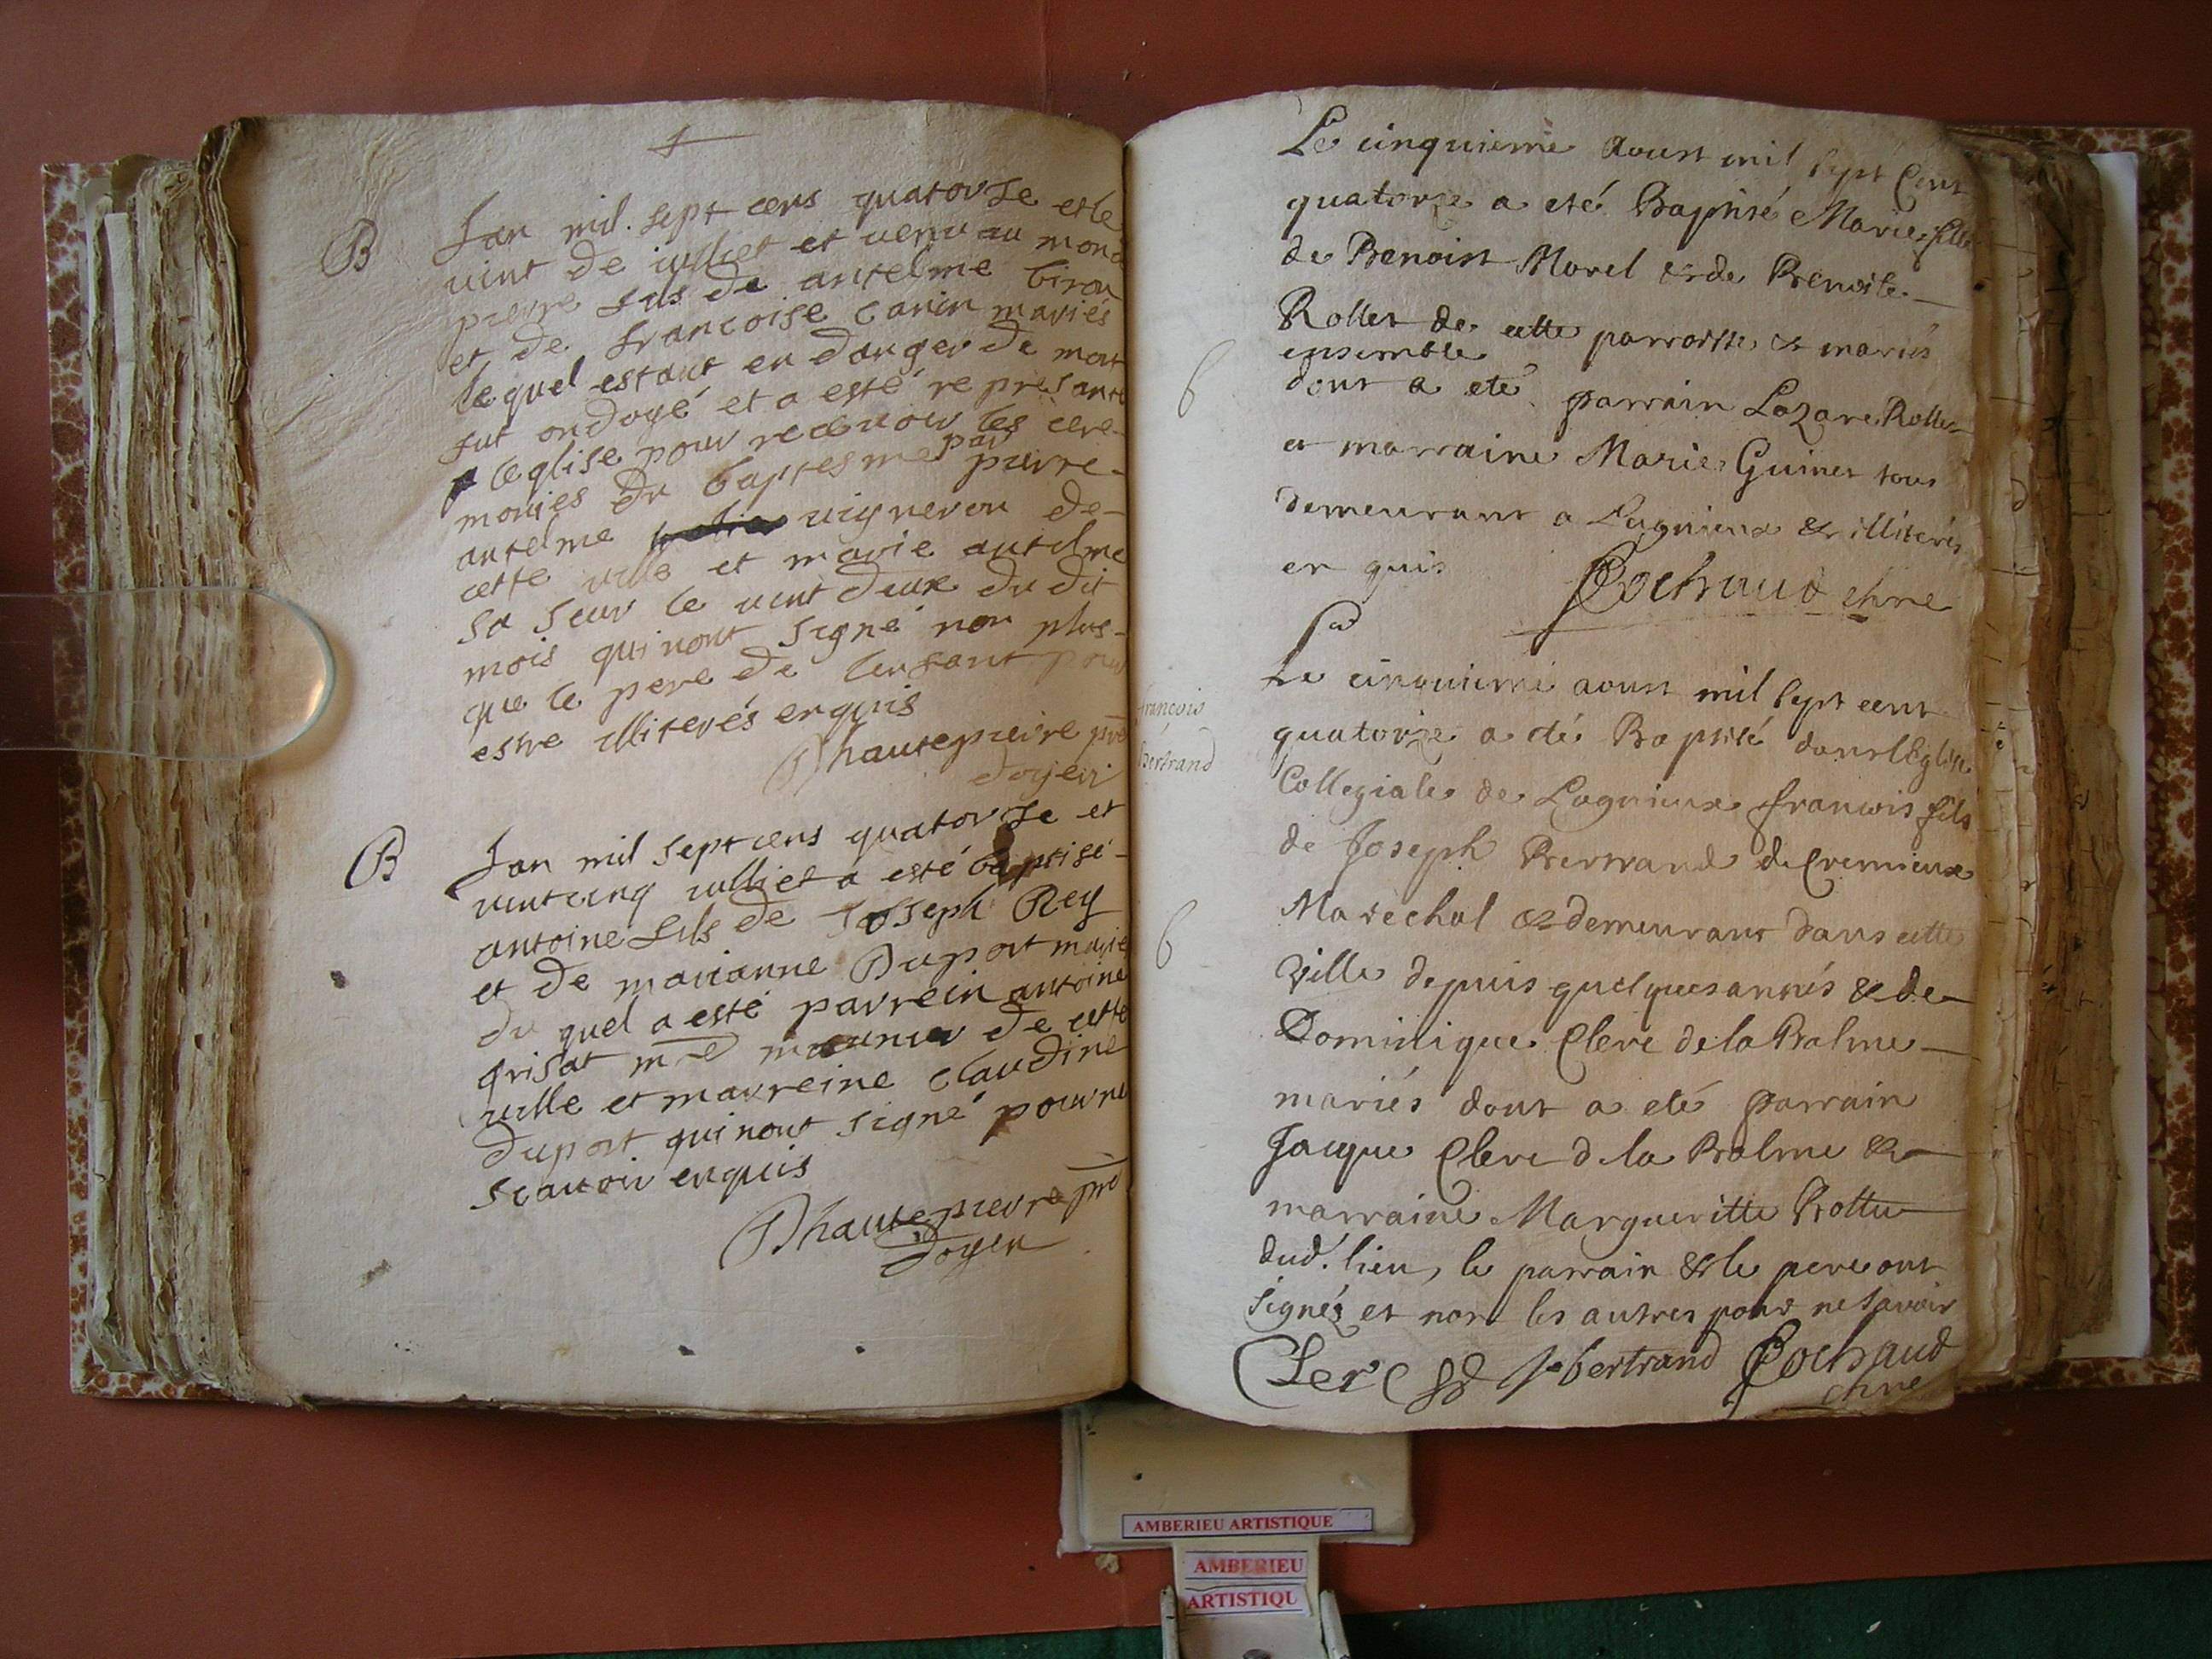 B
Lan mil. sept cens quatorse et le
vint de iulliet et venu au mond
pierre fils de antelme biron
et de francoise canin mariés
le quel estant en danger de mort
fut ondoyé et a esté represante
a leglise pour recevoir les cere-
monies du baptesme par pierre-
antelme vigneron de-
cette ville et marie antelme
sa seur le vint deux du dit
mois qui nont signé non plus-
que le pere de lenfant pour
estre illiterés enquis
Dhautepierre pre
doyen
B
Lan mil sept cens quatorse et
vintcinq iulliet a esté baptisé-
antoine fils de Joseph Rey
et de marianne Duport marie
du quel a esté parrein antoine
grisat me de cette
ville et marreine claudine
duport qui nont signé pour ne
scavoir enquis
Dhautepierre pre
doyen
Le cinquieme aoust mil sept cent
quatorze a eté Baptisé Marie fille
de Benoist Morel et de Benoite
Rollet de cette parroisse & mariés
ensemble
dont a eté parrain Lazare Rollet
et marraine Marie Guinet tous
demeurant a Lagnieux & illiterés
enquis
Cochaud chne
6
Le cinquieme aoust mil sept cent
quatorze a eté Baptisé dans lEglise
Collegiale de Lagnieux francois fils
de Joseph Bertrand de Cremieux
Marechal & demeurant dans cette
ville depuis quelques annés & de
Dominique Clerc de la Balme
mariés dont a eté parrain
Jacque Clerc de la Balme &
marraine Margueritte Rottu
dud. lieu, le parrain & le pere ont
signés et non les autres pour ne savoir
francois
Bertrand
6
Clerc J bertrand Cochaud
chne
AMBERIEU ARTISTIQUE
AMBERIEU
ARTISTIQU